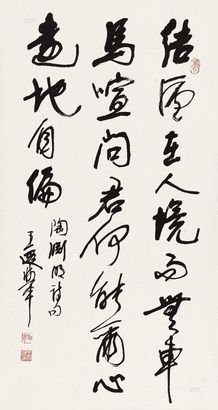 結廬在人境而無車
馬喧問君何能爾心
遠地自偏
陶淵明詩句
王遐舉